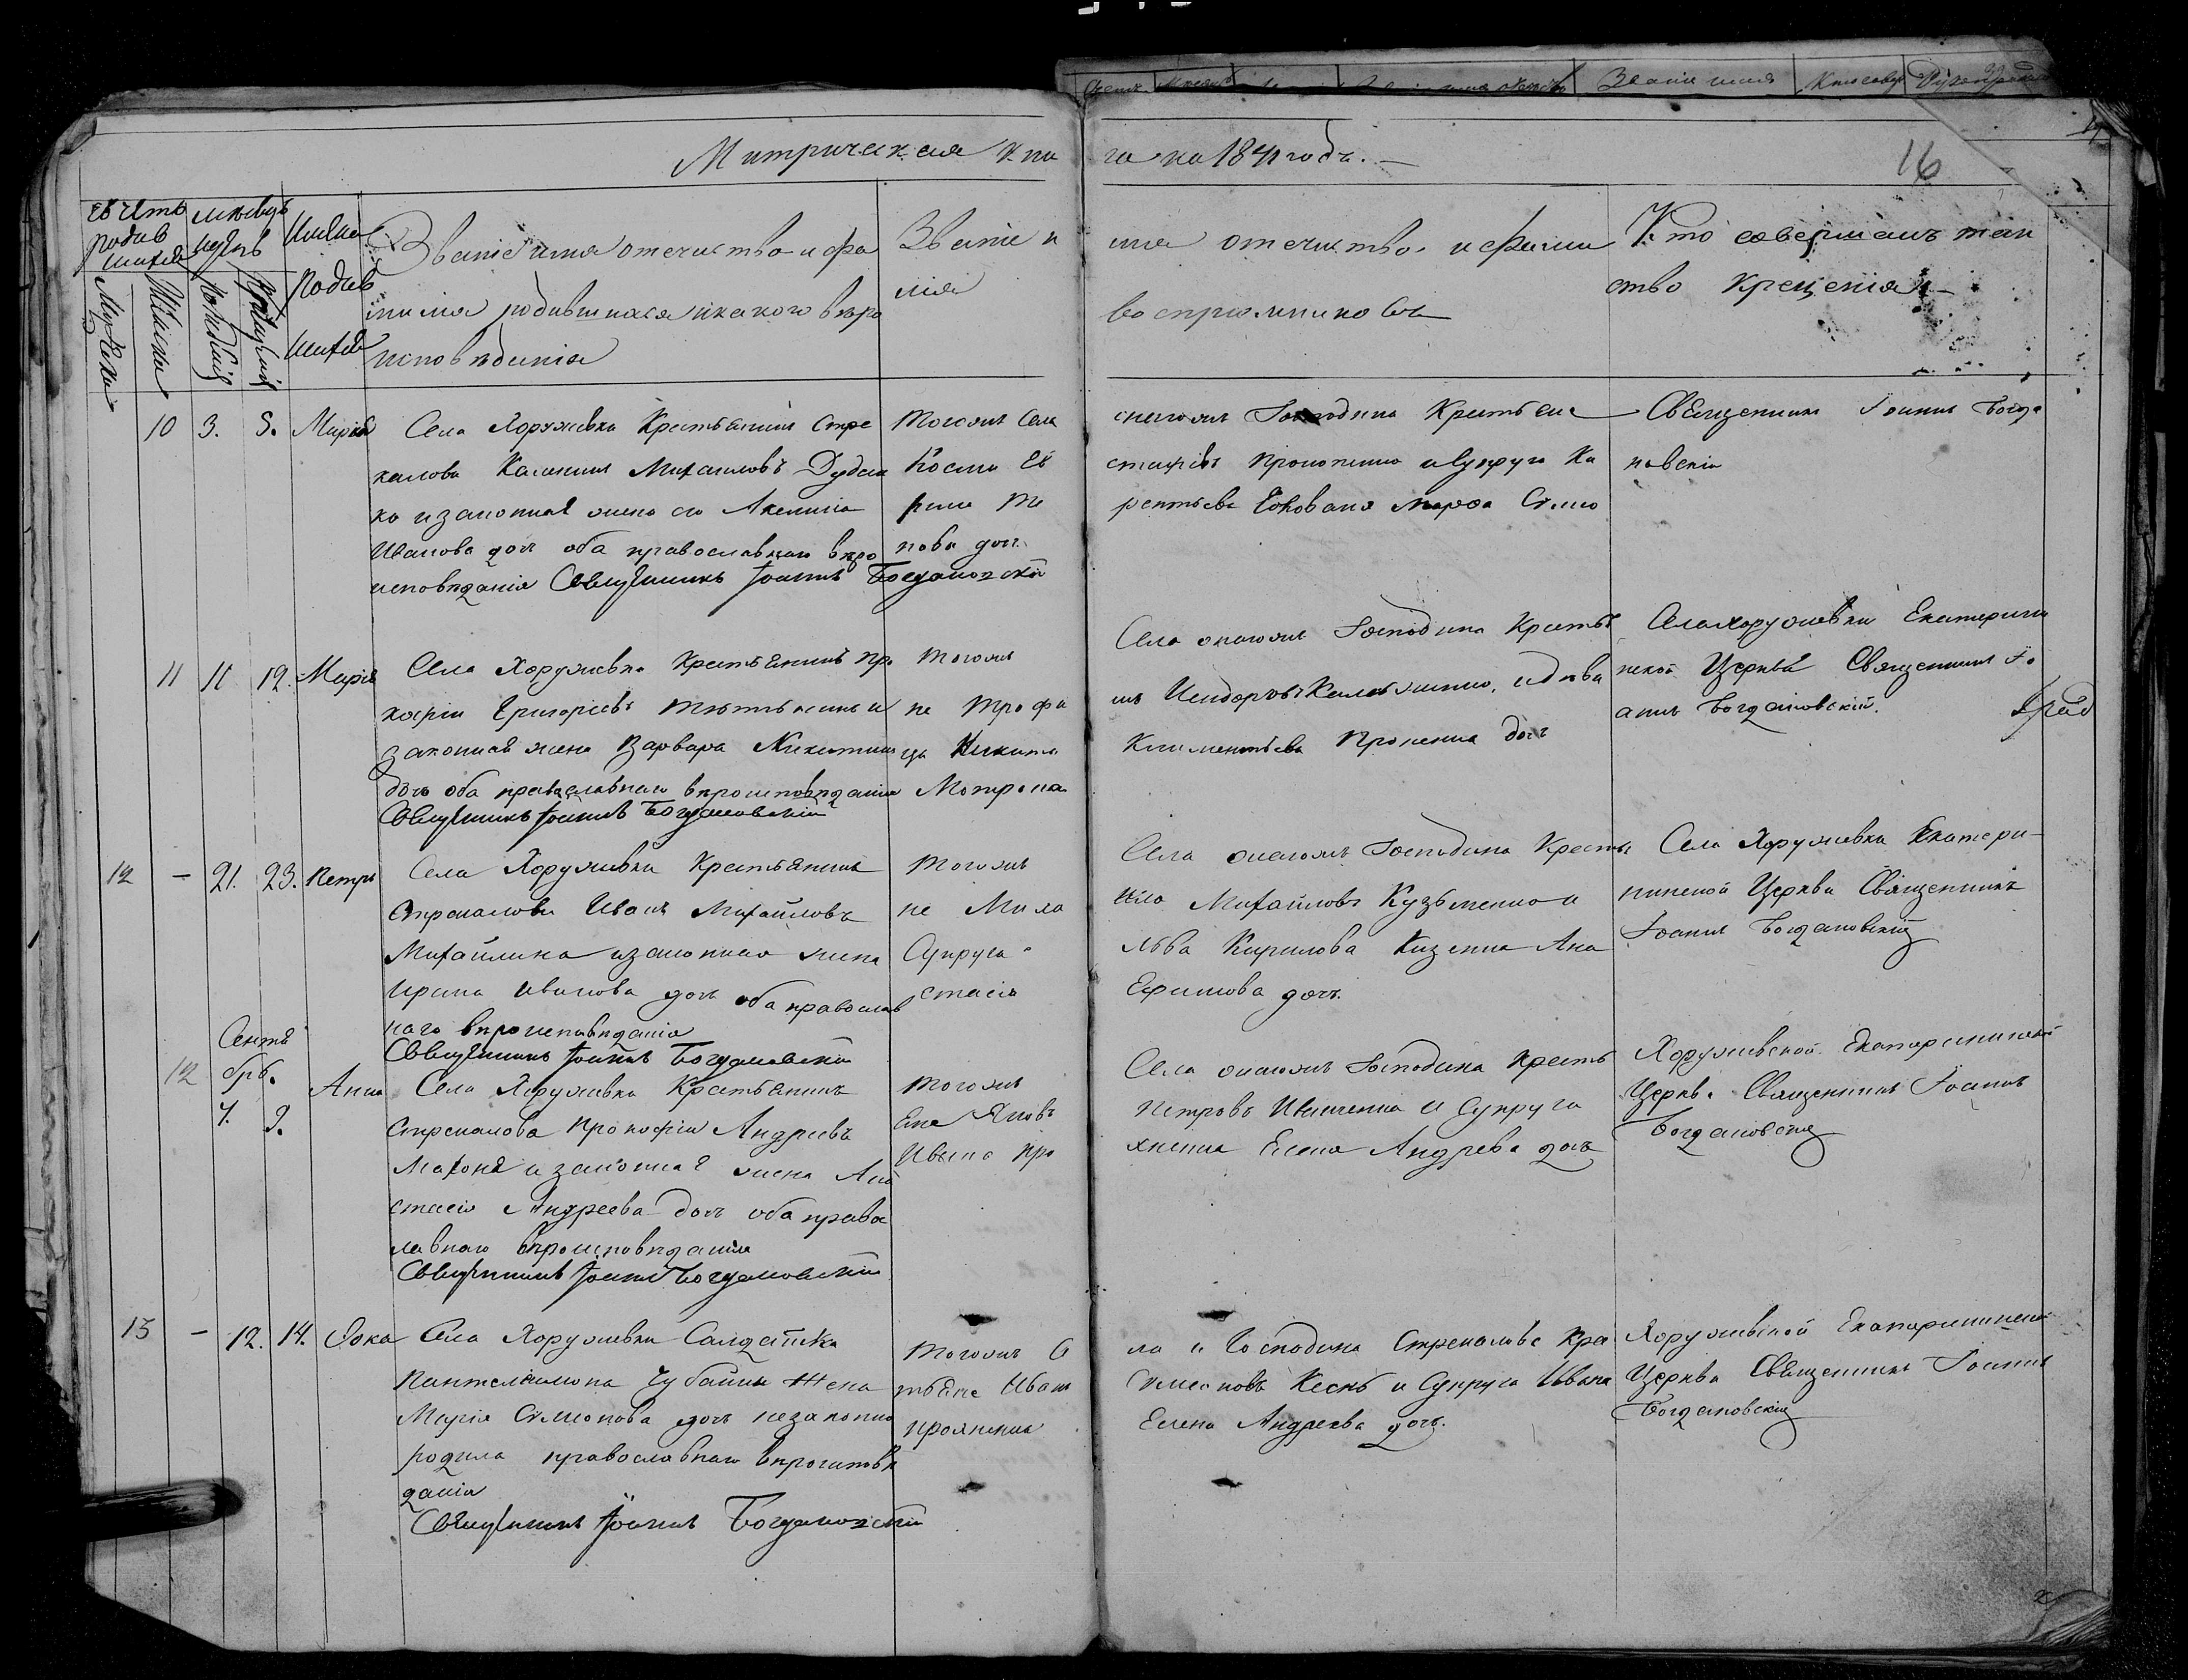 Митрическая кни
га на 1841 годъ.
16
Звание имя отечиство и фа
милия родившихся и какого веро
исповѣдания
Звание и
имя отечиство и фами
лия
воспрiемниковъ
Кто совершалъ таи
ство Крещения
Имена
родив
шихся
10 3. 5. Марiя
Села Хоружевки Крестьянинъ Стре
калова Михаиловъ
ко и законная жена его Акилина
Иванова доч оба православнаго веро
исповѣданiя Священникъ Iоаннъ Богдановскiй
Тогожъ Села
нова доч.
Господина Крестьяне
и Супруга
Марѳа Симо
Священникъ Iоаннъ Богда
новскiй
11 11 12. Марiя
Села Хоружевки Крестьянинъ Про
кофiй Григорiевъ
законная жена Варвара Никитина
доч оба православнаго вероисповѣданiя
Священникъ Iоаннъ Богдановскiй
Тогожъ
не Трофи
Никита
Мотрона
Села онагожъ Господина Крестья
мъ и дева
Климентьева доч
Села Хоружевки Екатерини
нской Церкви Священникъ Iо
аннъ Богдановскiй.
12 - 21. 23. Петръ
Села Хоружевки Крестьянинъ
Стрекалова Иванъ Михайловъ
Михайлика и законная жена
Ирина Иванова доч оба православ
наго вероисповѣданiя
Священникъ Iоаннъ Богдановскiй
Тогожъ
не Миха
Супруга
стасiя
Села онагожъ Господина Крестья
йло Михайловъ Кузьменко и
Кирилова Ана
Ефимова доч.
Села Хоружевки Екатери-
нинской Церкви Священникъ
Iоаннъ Богдановскiй
Сентя
брь.
12 7. 9. Анна
Села Хоружевки Крестьянинъ
Стрекалова Прокофiй Андреевъ
Махоня и законная жена Ана
стасiя Андреева доч оба право
славнаго вероисповѣданiя
Священникъ Iоаннъ Богдановскiй
Тогожъ
Яковъ
Ивана Про
Села онагожъ Господина Кресть
Петровъ Иваненка и Супруга
яненка Елена Андреева доч
Хоружевской Екатерининской
Церкви Священникъ Iоаннъ
Богдановскiй
13 - 12. 14. Ѳока
Села Хоружевки Салдатка
Пантелеимона Чубаина Жена
Марiя Симонова доч незаконно
родила православнаго вероисповѣ
данiя
Священникъ Iоаннъ Богдановскiй
Тогожъ Се
тьяне Иванъ
Прояненка
ла и Господина Стрекалова Кре
Симоновъ и Супруга Ивана
Елена Андреева доч.
Хоружевской Екатерининской
Церкви Священникъ Iоаннъ
Богдановскiй